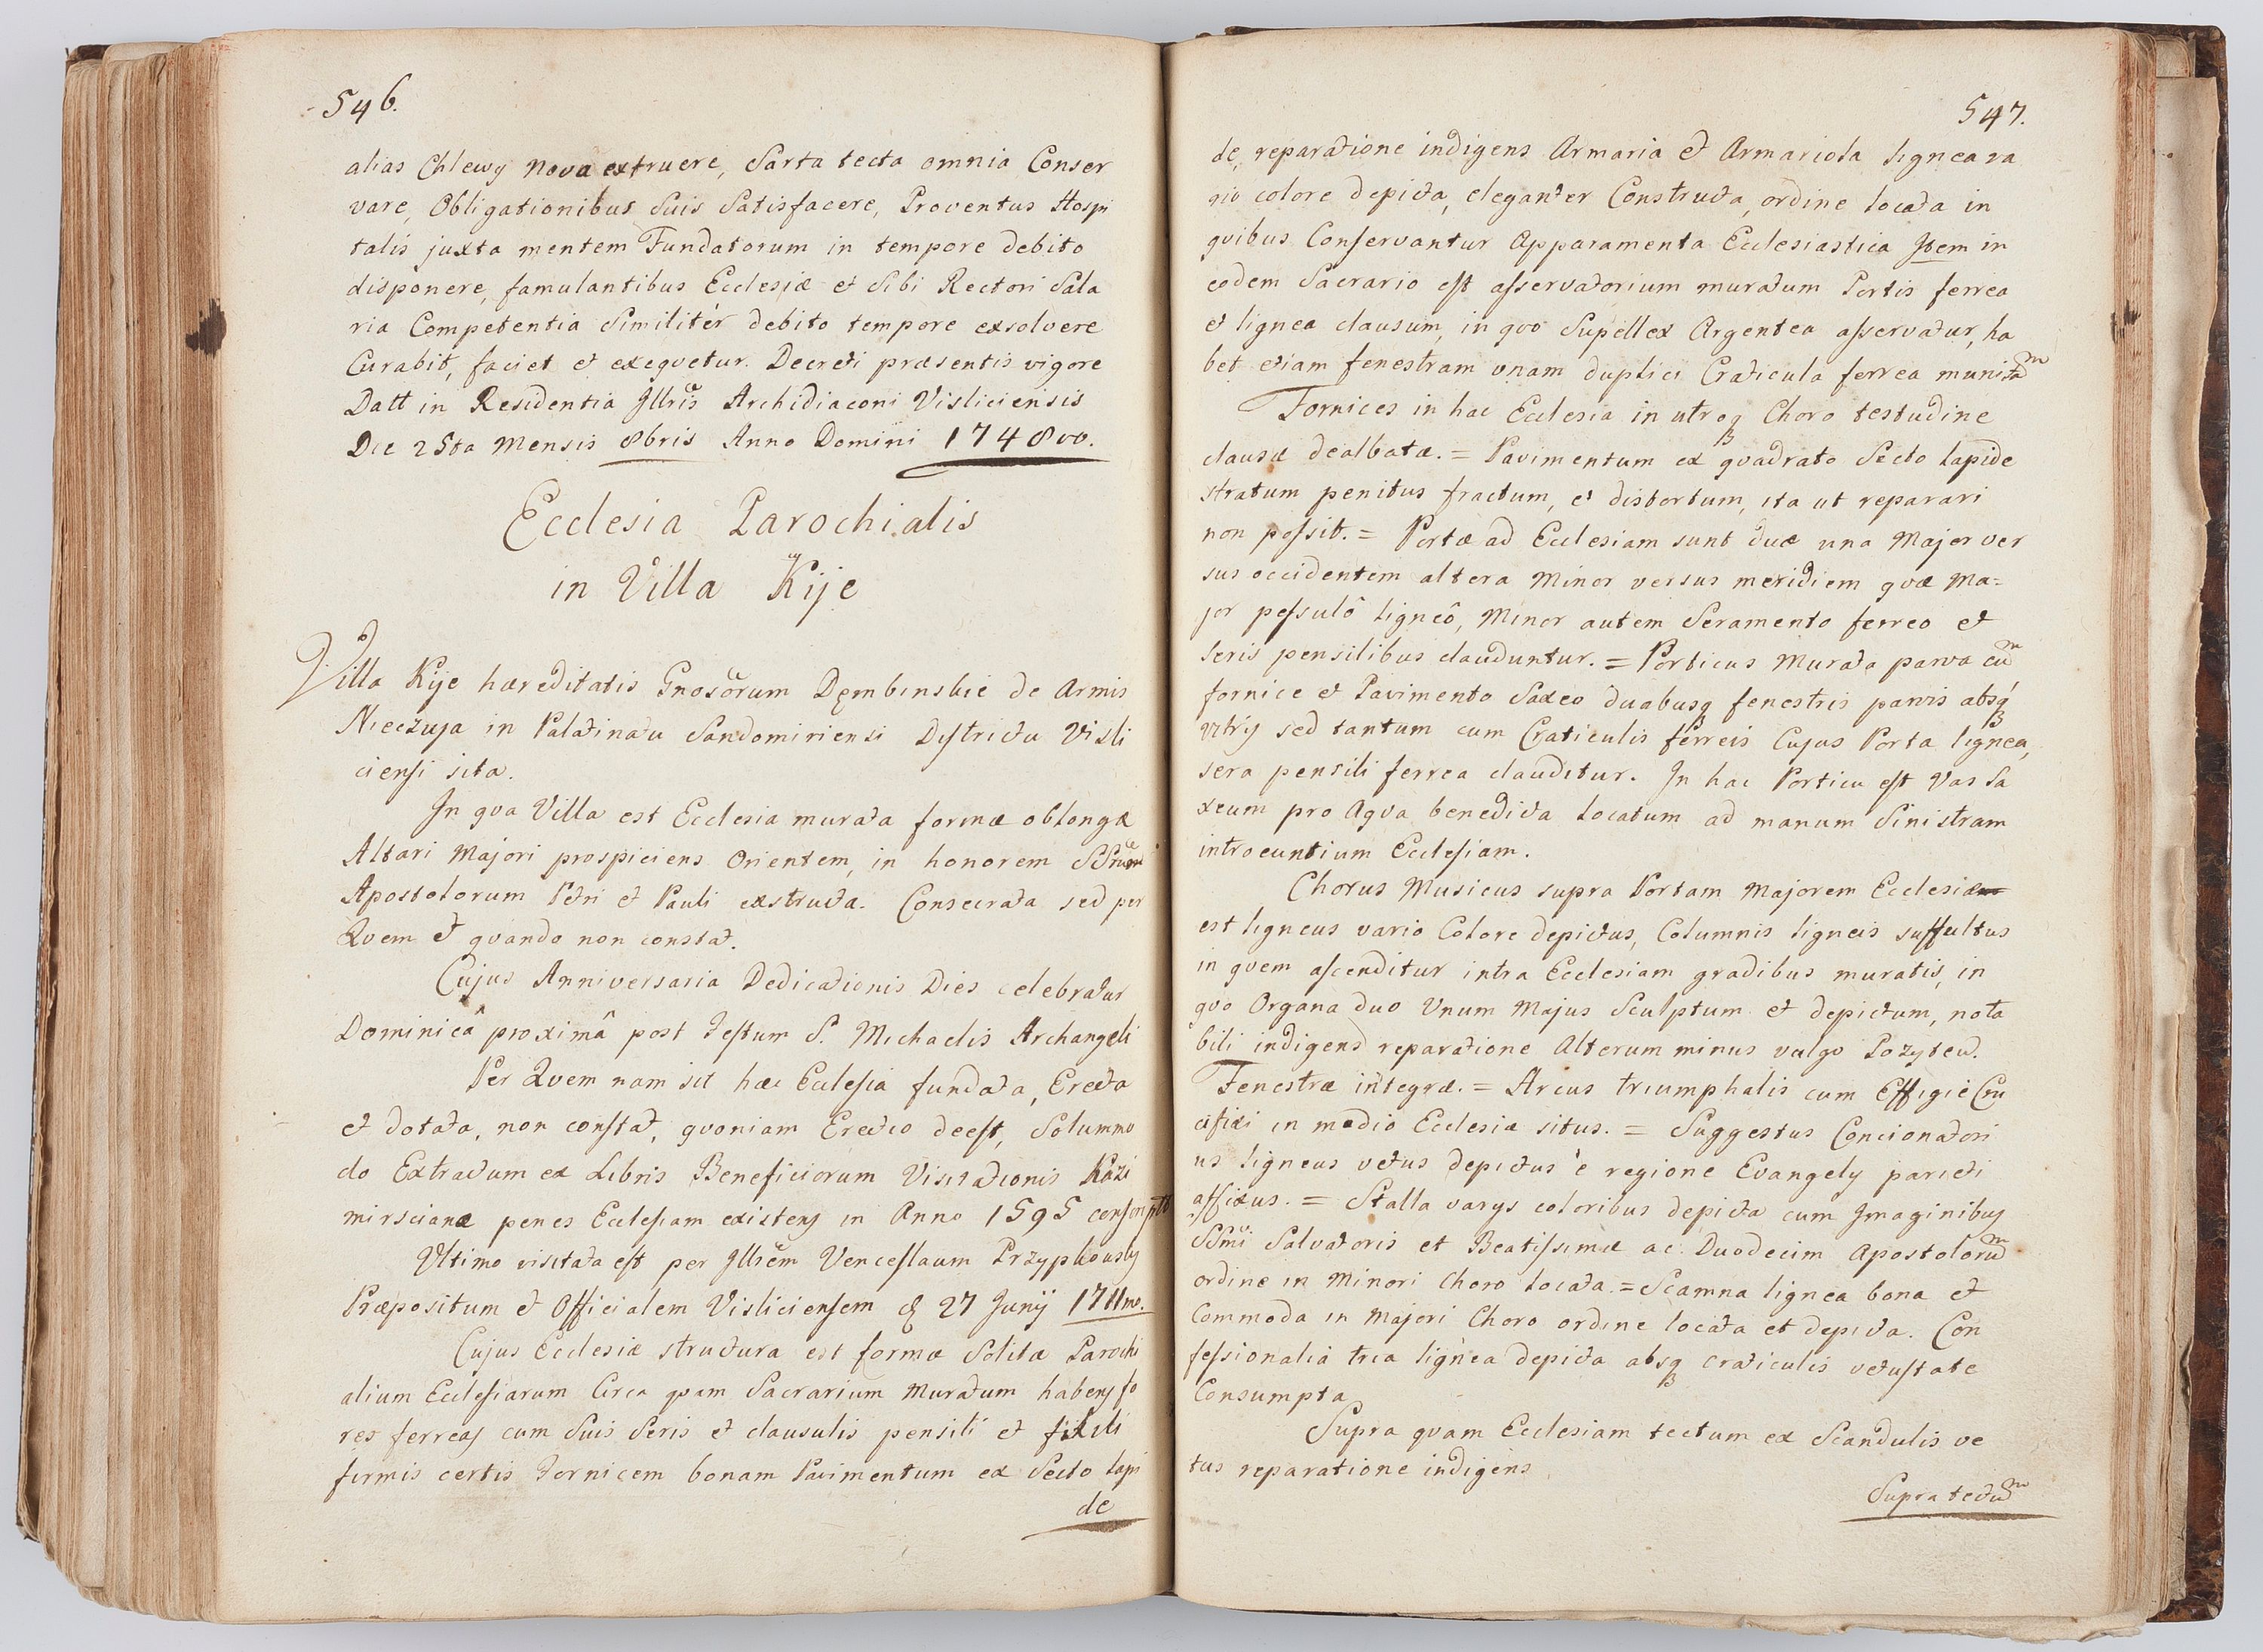 546.
alias Chlewy nova extruere, Sarta tecta omnia Conser
vare, Obligationibus Suis Satisfacere, Proventus Hospi
talis juxta mentem Fundatorum in tempore debito
disponere, famulantibus Ecclesiæ et Sibi Rectori Sala
ria Competentia Similiter debito tempore exsolvere
Curabit, faciet et exequetur. Decreti præsentis vigore
Datt in Residentia Illris Archidiaconi Visliciensis
Die 25ta Mensis 8bris Anno Domini 1748vo.
Ecclesia Parochialis
in Villa Kije
Villa Kije hæreditatis Gnosorum Dembinskie de Armis
Nieczuja in Palatinatu Sandomiriensi Dystrictu Visli
ciensi sita.
In qva Villa est Ecclesia murata formæ oblongæ
Altari Majori prospiciens Orientem, in honorem SSrum
Apostolorum Petri et Pauli exstructa. Consecrata sed per
Qvem et qvando non constat.
Cujus Anniversaria Dedicationis Dies celebratur
Dominicâ proximâ post Festum S. Michaelis Archangeli
Per Qvem nam sit hæc Ecclesia fundata, Erecta
et dotata, non constat, qvoniam Erectio deest, Solummo
do Extractum ex Libris Beneficiorum Visitationis Kazi
mirscianæ penes Ecclesiam existens in Anno 1595
Ultimo visitata est per Illrem Venceslaum Przypkowsky
Præpositum et Officialem Visliciensem 27 Junij 1711mo.
Cujus Ecclesiæ structura est formæ Solitæ Parochi
alium Ecclesiarum Circa qvam Sacrarium Muratum habens fo
res ferreas cum Suis Seris et clausulis pensili et fixili
firmis certis Fornicem bonam Pavimentum ex Secto lapi
de
547.
de, reparatione indigens Armaria et Armariola lignea va
rio colore depicta, eleganter Constructa, ordine locata in
qvibus Conservantur Apparamenta Ecclesiastica Item in
eodem Sacrario est asservatorium muratum Portis ferrea
et lignea clausum, in qvo Supellex Argentea asservatur, ha
bet etiam fenestram unam duplici Craticula ferrea munitam
Fornices in hac Ecclesia in utroq Choro testudine
clausæ dealbatæ. = Pavimentum ex qvadrato Secto lapide
stratum penitus fractum, et distortum, ita ut reparari
non possit. = Portæ ad Ecclesiam sunt duæ una Major ver
sus occidentem altera Minor versus meridiem qvæ Ma=
jor pessulô ligneô, Minor autem Seramento ferreo et
seris pensilibus clauduntur. = Porticus Murata parva cum
fornice et Pavimento Saxeo duabusq fenestris parvis absq
vitrij sed tantum cum Craticulis ferreis Cujus Porta lignea,
sera pensili ferrea clauditur. In hac Porticu est Vas Sa
xeum pro Aqva benedicta locatum ad manum Sinistram
introeuntium Ecclesiam.
Chorus Musicus supra Portam Majorem Ecclesiæ
est ligneus vario Colore depictus, Columnis ligneis suffultus
in qvem ascenditur intra Ecclesiam gradibus muratis, in
qvo Organa duo Unum Majus Sculptum et depictum, nota
bili indigens reparatione Alterum minus vulgo Pozytew.
Fenestræ integræ. = Arcus triumphalis cum Effigie Cru
cifixi in medio Ecclesiæ situs. = Suggestus Concionatori
us ligneus vetus depictus è regione Evangely parieti
affixus. = Stalla varys coloribus depicta cum Imaginibus
SSmi Salvatoris et Beatissimæ ac Duodecim Apostolorum
ordine in Minori Choro locata. = Scamna lignea bona et
Commoda in Majori Choro ordine locata et depicta. Con
fessionalia tria lignea depicta absq craticulis vetustate
Consumpta
Supra qvam Ecclesiam tectum ex Scandulis ve
tus reparatione indigens
Supra tectum